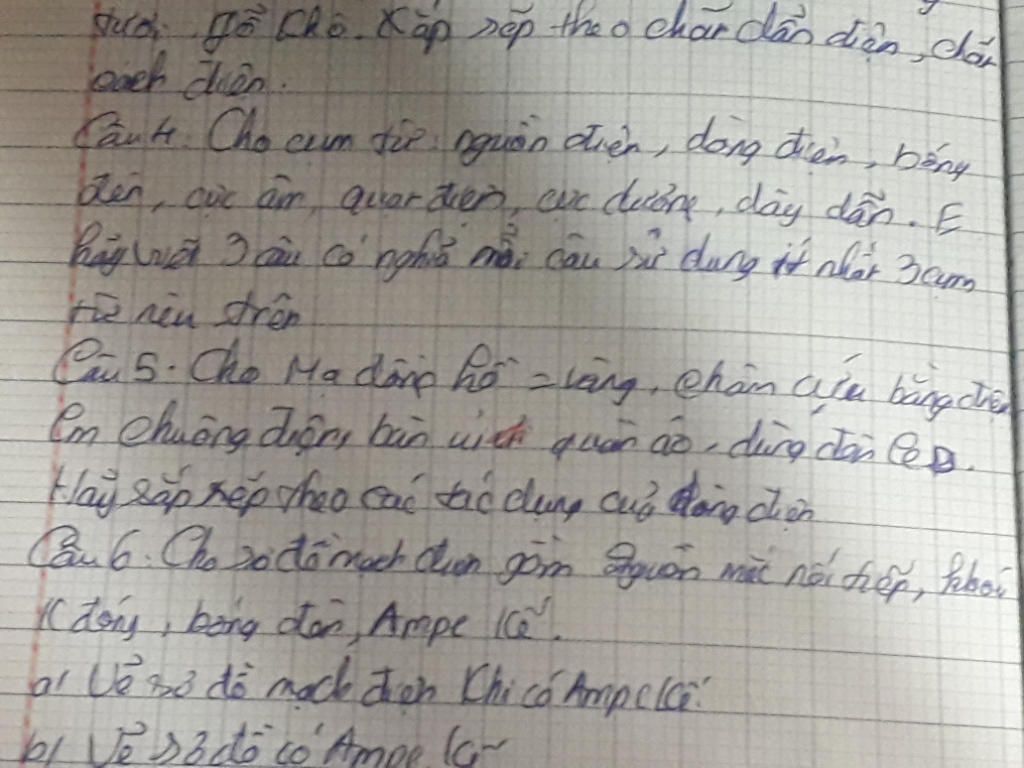 tươi. gỗ khô. Xắp xếp theo chất dẫn điện, chất
cách điện.
Câu 4: Cho cụm từ: nguồn điện, dòng điện, bóng
đèn, cực âm, quạt điện, cực dương, dây dẫn. E
hãy viết 3 câu có nghĩa mỗi câu sử dụng ít nhất 3 cụm
từ nêu trên
Câu 5. Cho Mạ đồng hồ = vàng, châm cứu bằng điện
chuông điện, bàn ủi quần áo, dùng đèn LeD.
Hãy sắp xếp theo các tác dụng của dòng điện
Câu 6: Cho sơ đồ mạch điện gồm 2 nguồn mắc nối tiếp, khoá
K đóng, bóng đèn, Ampe kế.
a/ Vẽ sơ đồ mạch điện khi có Ampe kế.
b/ Vẽ sơ đồ có Ampe kế